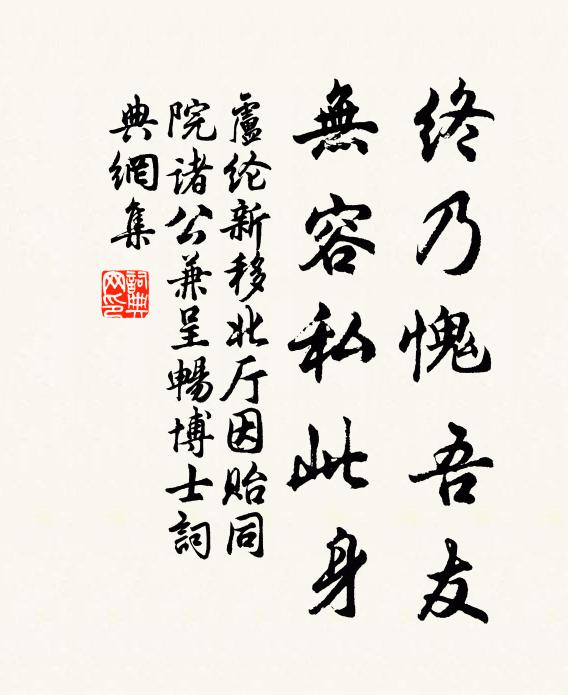 終乃愧吾友
無容私此身
盧纶新移北厅因貽同
院诸公兼呈暢博士詞
典網集
詞典
网印